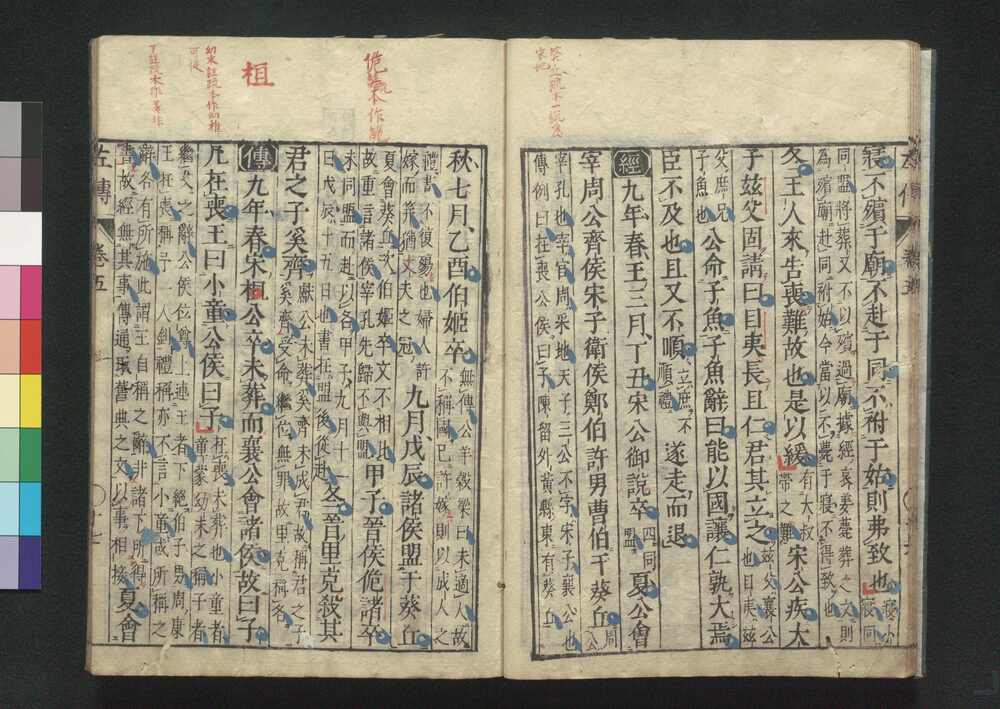 葵丘疏本一疏爲
宋地
寢不殯于廟不赴于同不祔于始則弗致也
同盟將葬又不以殯過廟據經哀姜薨葬之文則
為殯廟赴同祔姑今當以不薨于寢不得致也
冬王人來告喪難故也是以緩有大叔帶之難宋公疾大
子茲父固請曰目夷長且仁君其立之茲父襄公也目夷茲
父庶兄子魚也公命子魚子魚辭曰能以國讓仁孰大焉
臣不及也且又不順立庶不順禮遂走而退
經九年春王三月丁丑宋公御說卒四同盟夏公會
宰周公齊侯宋子衛侯鄭伯許男曹伯于葵丘周公
宰孔也宰官周采地天子三公不字宋子襄公也
傳例曰在喪公侯曰子陳留外黃縣東有葵丘
秋七月乙酉伯姬卒無傳公羊穀梁曰未適人故
不稱國已許嫁則以成人之
禮書不復殤也婦人許
嫁而筓猶丈夫之冠九月戊辰諸侯盟于葵丘
夏會葵丘次伯姬卒文不相比
故重言諸侯宰孔先歸不與盟甲子晉侯佹諸卒
未同盟而赴以名甲子九月十一
日戊辰十五日也書在盟後從赴冬晉里克殺其
君之子奚齊獻公未葬奚齊未成君故稱君之子
奚齊受命繼位無罪故里克稱名
傳九年春宋桓公卒未葬而襄公會諸侯故曰子
凡在喪王曰小童公侯曰子在喪未葬也小童者
童蒙幼末之稱子者
繼父之辭公侯位尊上連王者下絕伯子男周康
王在喪稱予一人釗禮稱亦不言小童或所稱之
辭各有所施此謂王自稱之辭非諸下所得
書故經無其事傳通取舊典之文以事相接夏會
佹註疏本作
桓
幼末註疏本作幼稚
可從
左傳
卷五